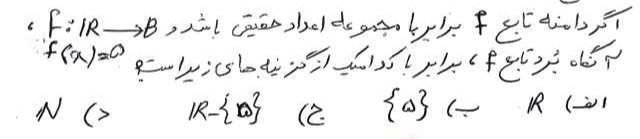 اگر دامنه تابع f برابر با مجموعه اعداد حقیقی باشد و f: IR→B ،
f(x)=۵
آنگاه بُرد تابع f، برابر با کدامیک از گزینه های زیر است؟
الف) IR ب) {۵} ج) IR-{۵} د) N